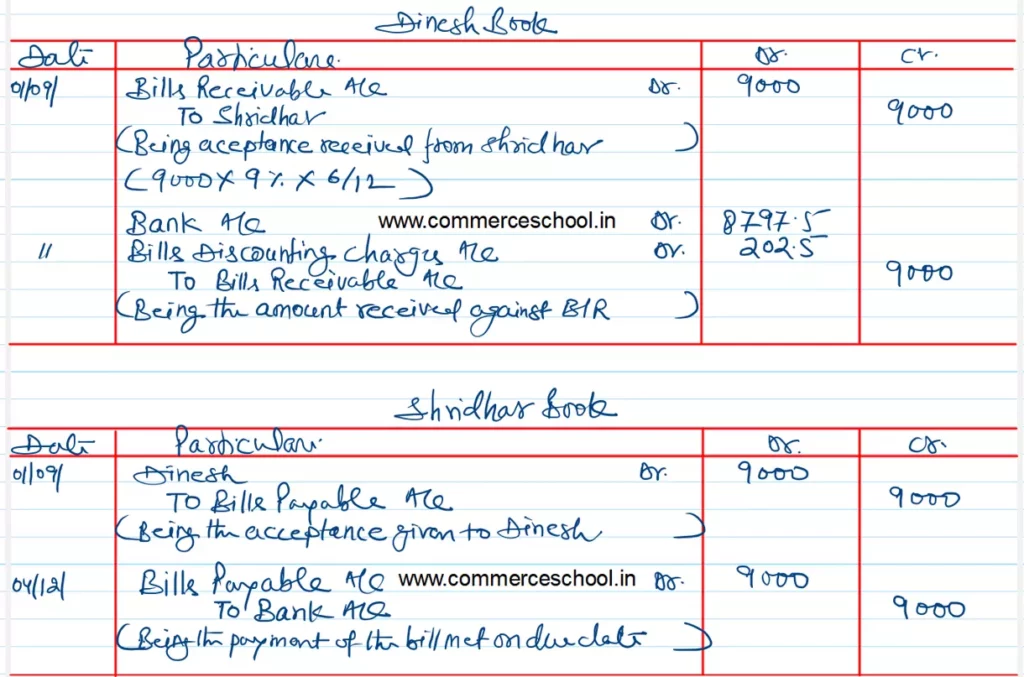 Dinesh Book
Date Particulars Dr. Cr.
01/09/ Bills Receivable A/c Dr. 9000
To Shridhar 9000
(Being aceptance received from shridhar)
(9000 X 9% X 6/12)
Bank A/c www.commerceschool.in Dr. 8797.5
" Bills Discounting Charges A/c Dr. 202.5
To Bills Receivable A/c 9000
(Being the amount received against B/R)
Shridhar Book
Date Particulars Dr. Cr.
01/09/ Dinesh Dr. 9000
To Bills Payable A/c 9000
(Being the acceptance given to Dinesh)
04/12/ Bills Payable A/c www.commerceschool.in Dr. 9000
To Bank A/c 9000
(Being the payment of the bill met on due date)